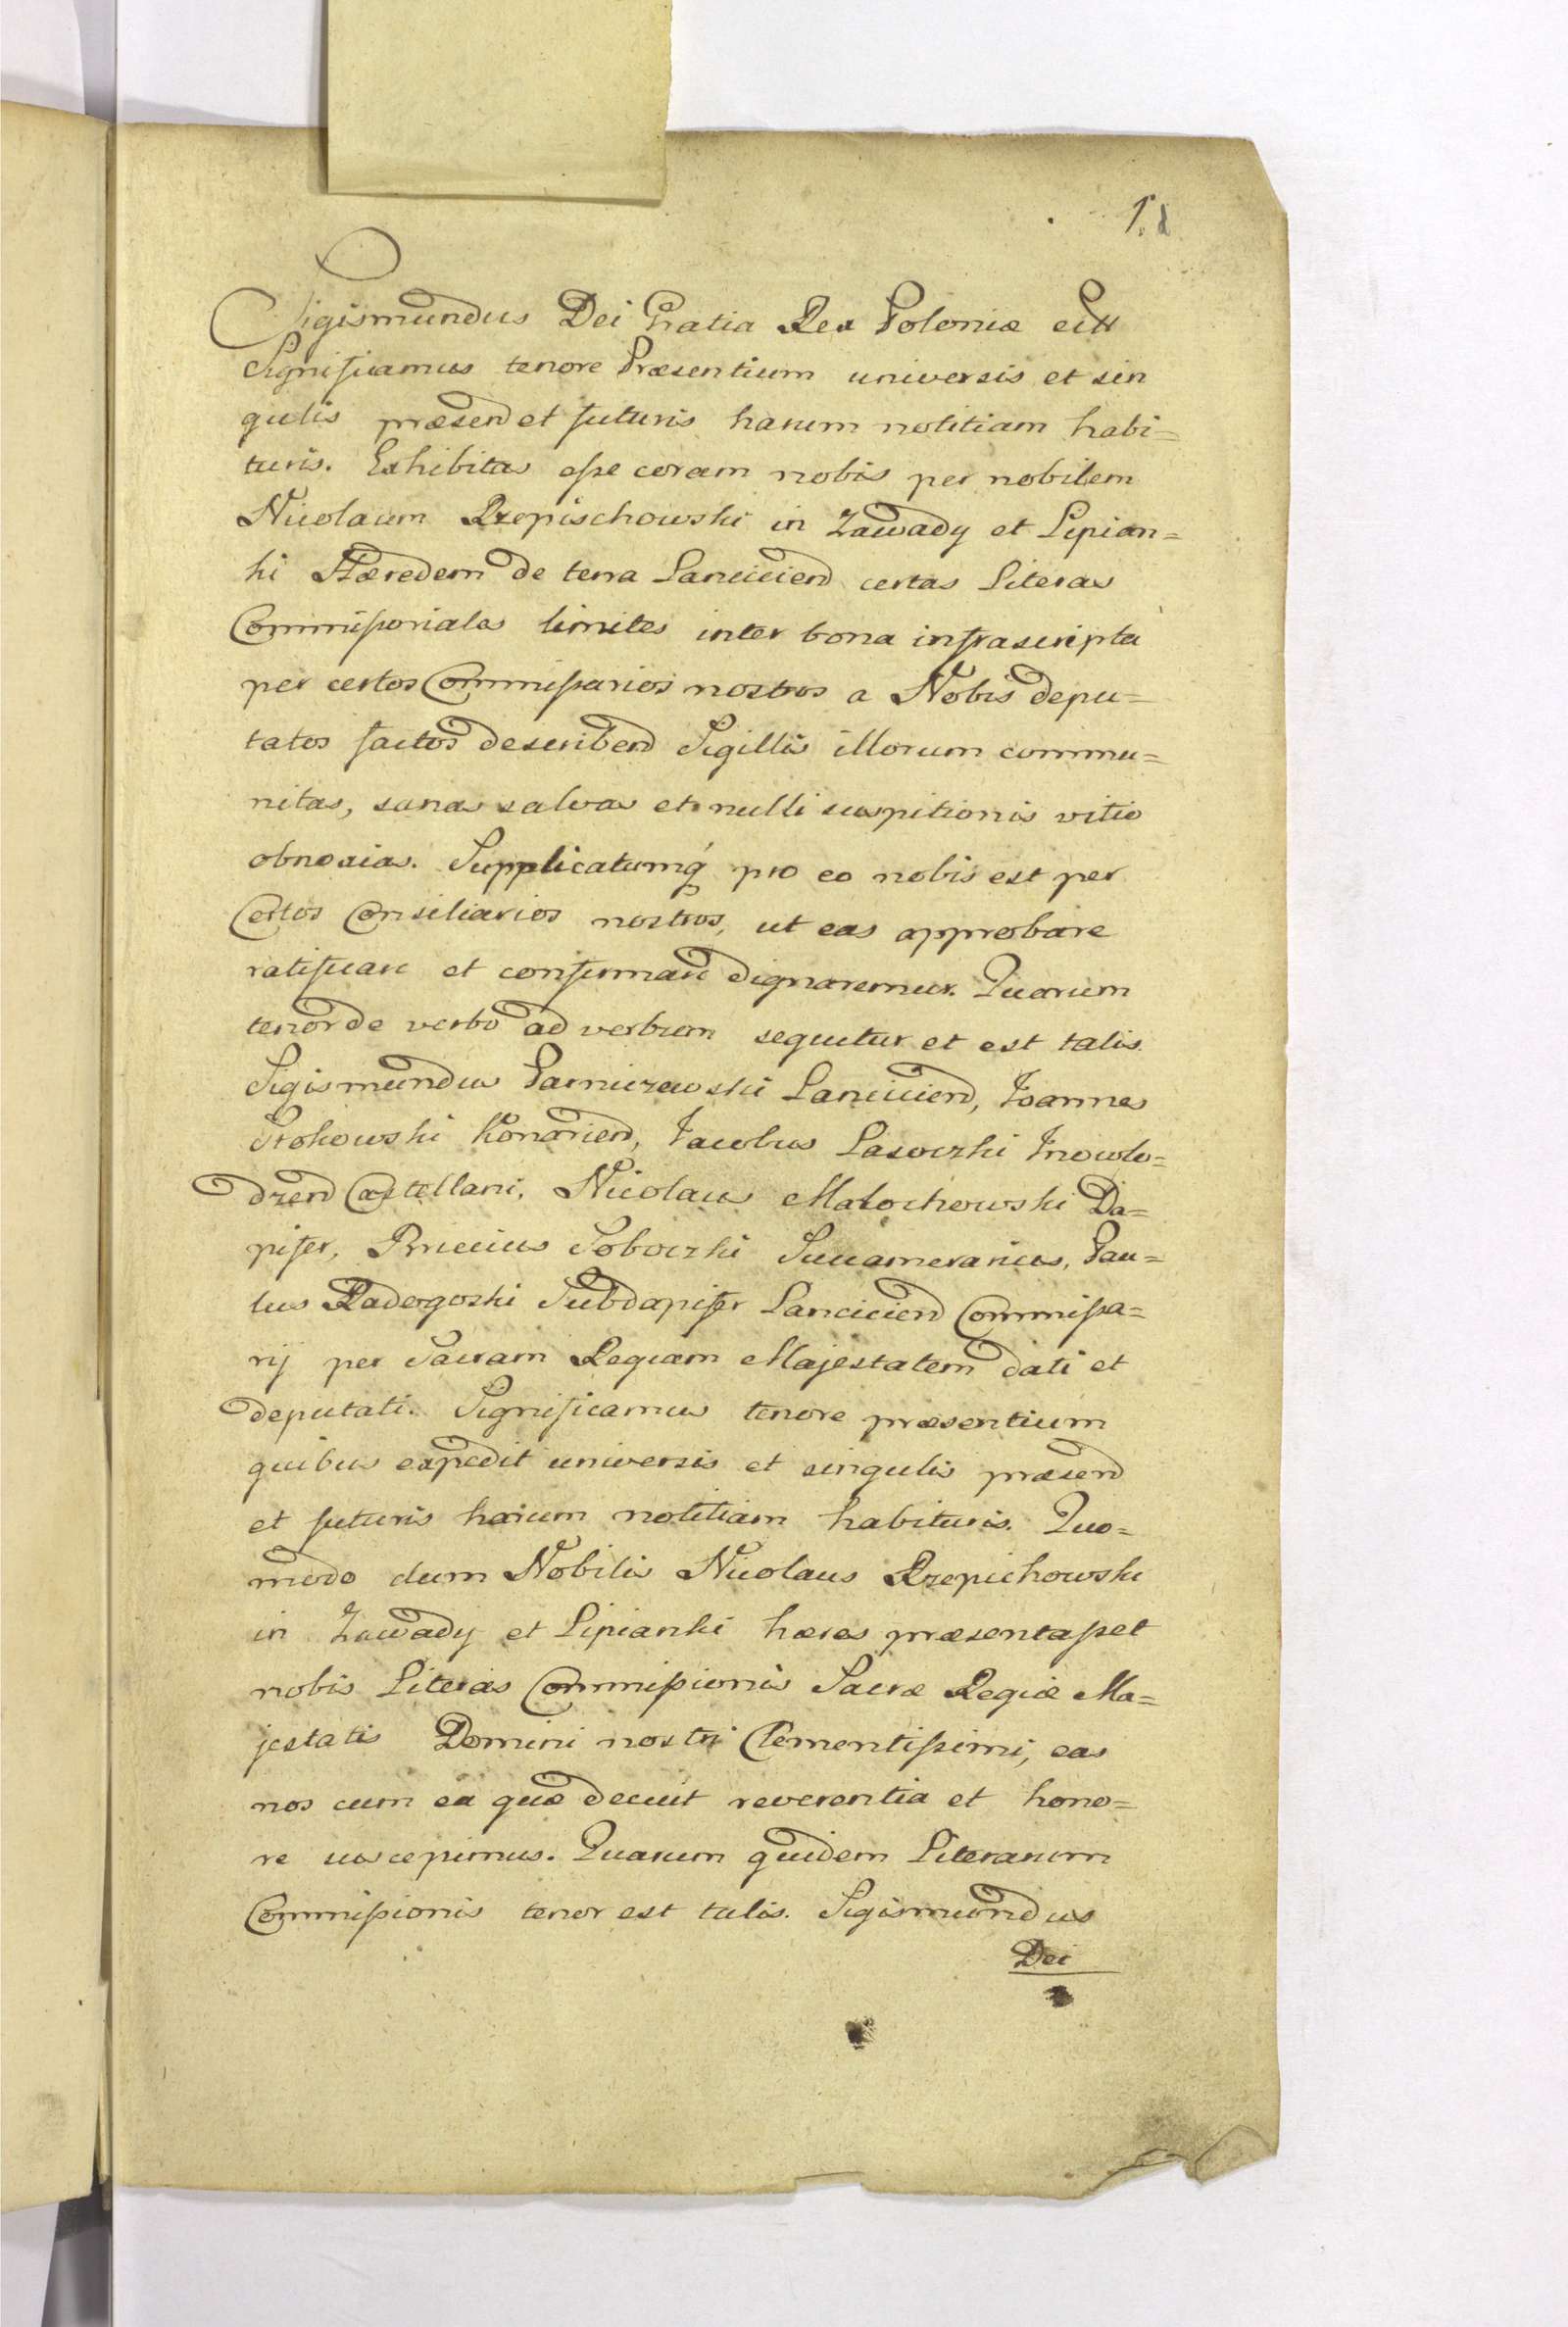 1.
Sigismundus Dei Gratia Rex Poloniæ ett
Significamus tenore Præsentium universis et sin
gulis præsend et futuris harum notitiam habi=
turis. Exhibitas esse coram nobis per nobilem
Nicolaum Rzepischowski in Zawady et Lipian=
ki Hæredem de terra Lanciciend certas Literas
Commissoriales limites inter bona infrascripta
per certos Commissarios nostros a Nobis depu=
tatos factos describend Sigillis illorum commu=
nitas, sanas salvas et nulli suspitionis vitio
obnoxias. Supplicatumq́ pro eo nobis est per
Certos Consiliarios nostros, ut eas approbare
ratificare et confirmare dignaremur. Quarum
tenor de verbo ad verbum sequitur et est talis.
Sigismundus Parniczewski Lanciciend, Joannes
Srokowski Konariend, Jacobus Lasoczki Inowlo=
dzend Castellani, Nicolaus Malochowski Da=
pifer, Briccius Soboczki Succamerarius, Pau=
lus Radogoski Subdapifer Lanciciend Commissa=
rij per Sacram Regiam Majestatem dati et
deputati. Significamus tenore præsentium
quibus expedit universis et singulis præsend
et futuris harum notitiam habituris. Quo=
modo dum Nobilis Nicolaus Rzepichowski
in Zawady et Lipianki hæres præsentasset
nobis Literas Commissionis Sacræ Regiæ Ma=
jestatis Domini nostri Clementissimi, eas
nos cum ea quæ decuit reverentia et hono=
re suscepimus. Quarum quidem Literarum
Commissionis tenor est talis. Sigismundus
Dei